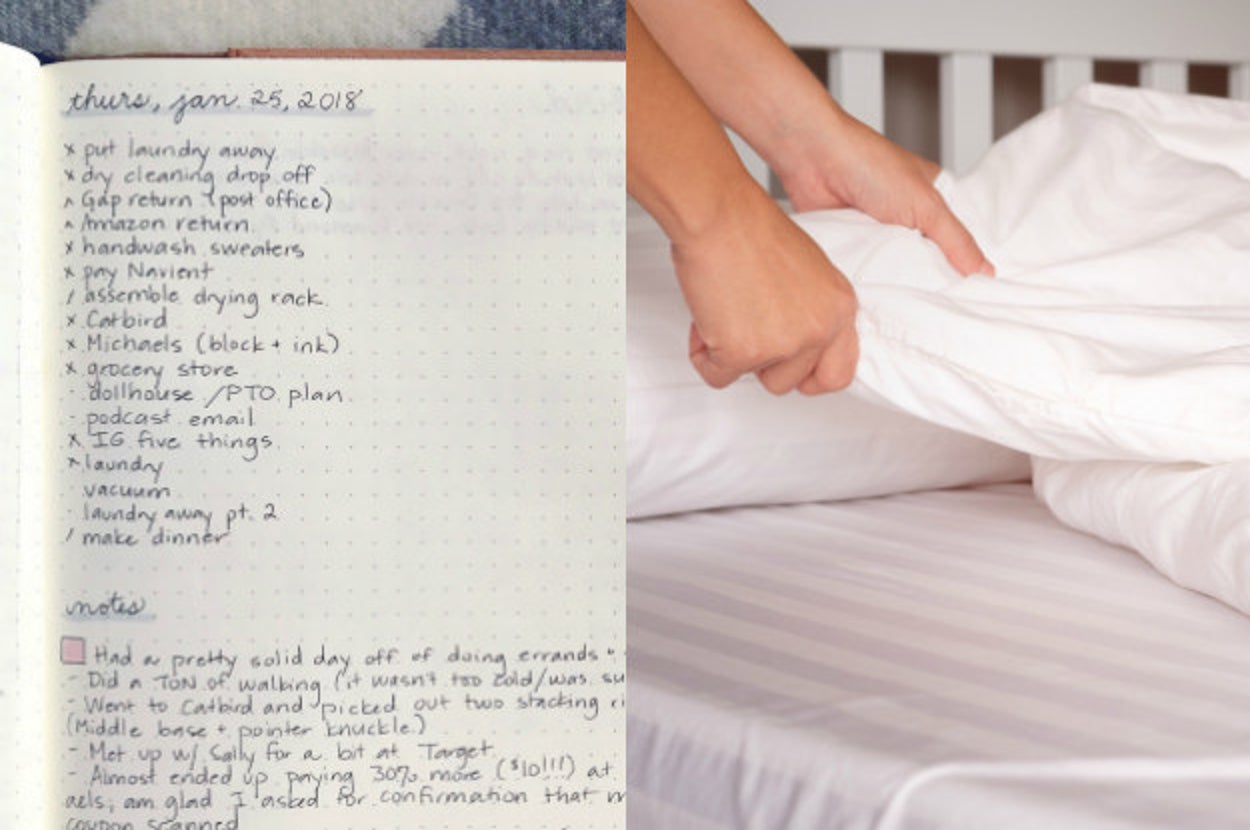 thurs, jan. 25, 2018
x put laundry away
x dry cleaning drop off
^ Gap return (post office)
^ Amazon return
x handwash sweaters
x pay Navient
/ assemble drying rack
x Catbird
x Michaels (block + ink)
x grocery store
· dollhouse /PTO plan
· podcast email
x IG five things
x laundry
· vacuum
· laundry away pt. 2
/ make dinner
notes
Had a pretty solid day off of doing errands
- Did a TON of walking (it wasn't too cold/was su
- Went to Catbird and picked out two stacking ri
(Middle base + pointer knuckle.)
- Met up w/ Sally for a bit at Target
- Almost ended up paying 30% more ($10!!!) at
aels, am glad I asked for confirmation that m
coupon scanned